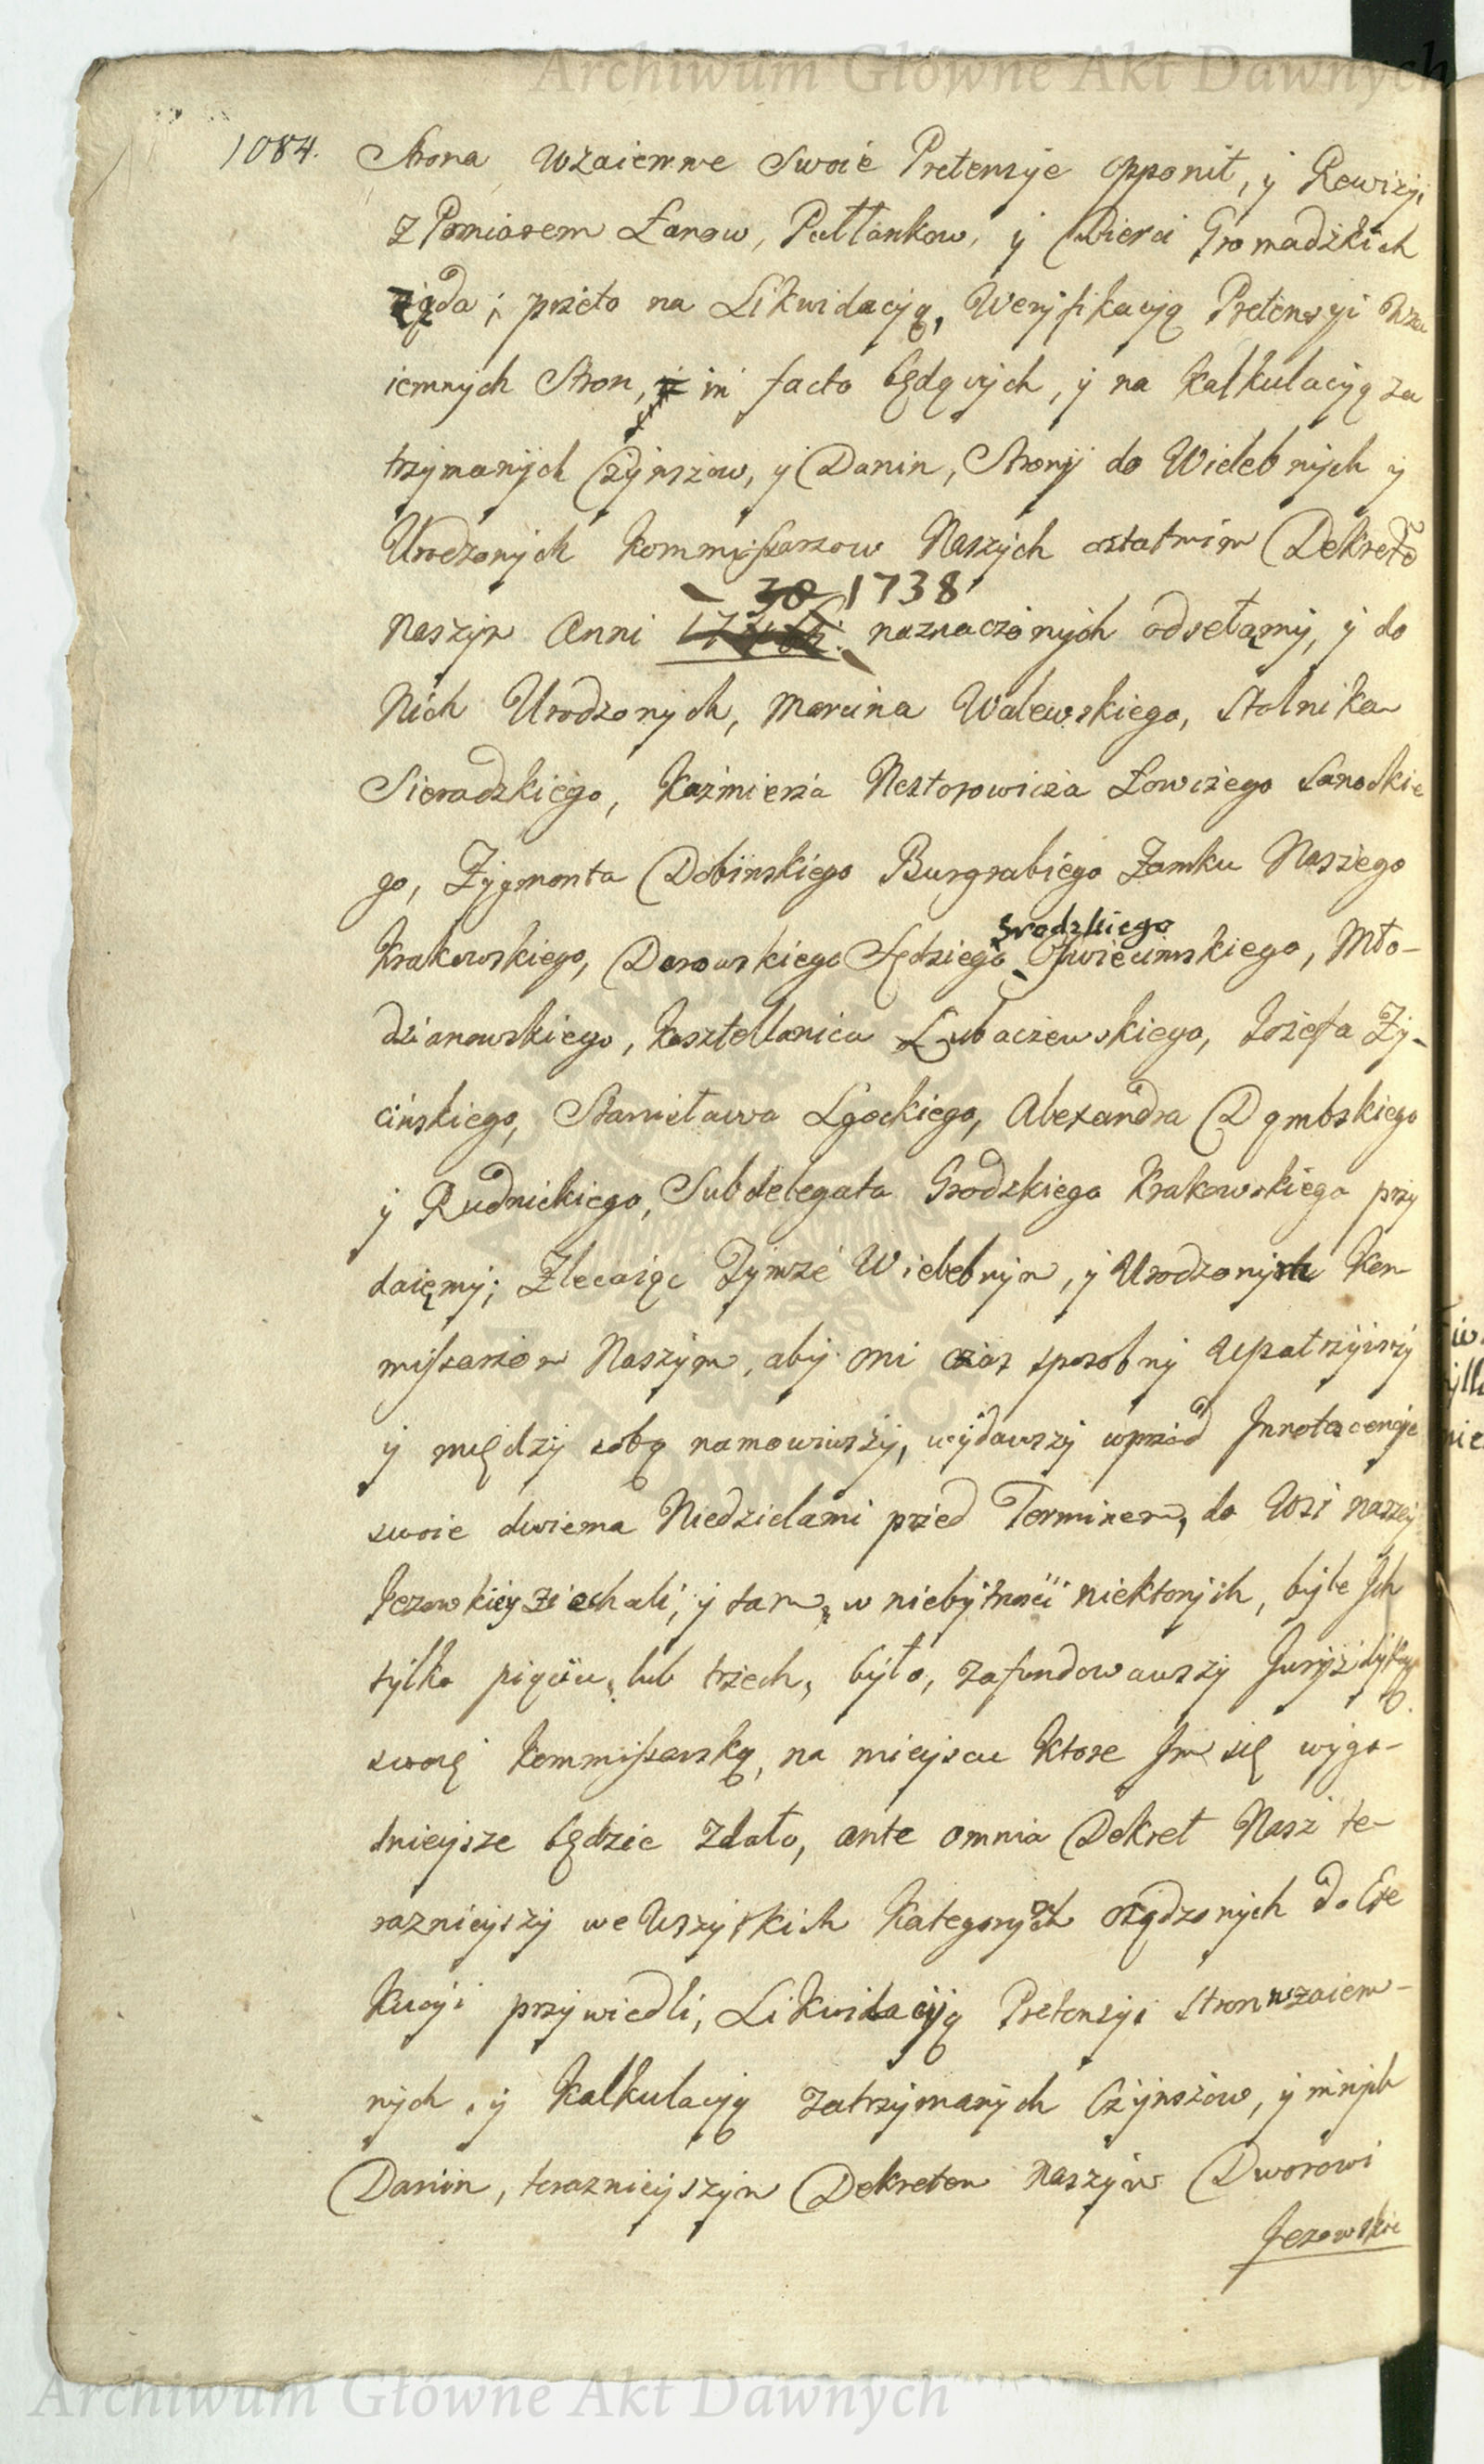 Archiwum Główne Akt Dawnych
1084. Strona wzaiemne swoie Pretensye opponit, y Rewizyi
z Pomiarem Łanow, Pułłankow, y Cwierci Gromadzkich
żąda; przeto na Likwidacyą, Weryfikacyą Pretensyi wza
iemnych Stron, in facto będących, y na Kalkulacyą za
trzymanych Czynszow, y Danin, Strony do Wielebnych y
Urodzonych Kommissarzow Naszych ostatnim Dekretẽ
30 1738
Naszym Anni naznaczonych odsełamy, y do
Nich Urodzonych, Marcina Walewskiego, Stolnika
Sieradzkiego, Kaźmierza Nestorowicza Łowczego Sanockie
go, Zygmonta Dobinskiego Burgrabiego Zamku Naszego
Grodzkiego
Krakowskiego, Dorowskiego Sędziego Oswiecimskiego, Mło-
dzianowskiego, Kasztellanica Lubaczewskiego, Jozefa Ży-
cińskiego, Stanisława Lgockiego, Alexandra Dąmbskiego
y Rudnickiego, Subdelegata Grodzkiego Krakowskiego przy
daięmy; Zlecaiąc Tymże Wielebnym, y Urodzonych Kom
missarzom Naszym, aby oni czas sposobny upatrzywszy
y między sobą namowiwszy, wydawszy wprzod Innotescencye
swoie dwiema Niedzielami przed Terminem, do Wsi naszey
Jezowskiey ziechali, y tam, w niebytnosci niektorych, byle Jch
tylko pięciu, lub trzech, było, zafundowawszy Juryzdykcyą
swoię Kommissarską, na mieyscu ktore Jm się wygo-
dnieysze będzie zdało, ante omnia Dekret Nasz te-
raznieyszy we Wszystkich Kategoryach osądzonych do Exe
kucyi przywiedli, Likwidacyią Pretensyi stron wzaiem-
nych, y Kalkulacyą zatrzymanych Czynszow, y innych
Danin, teraznieyszym Dekretem naszym Dworowi
Jezowskie
Archiwum Główne Akt Dawnych